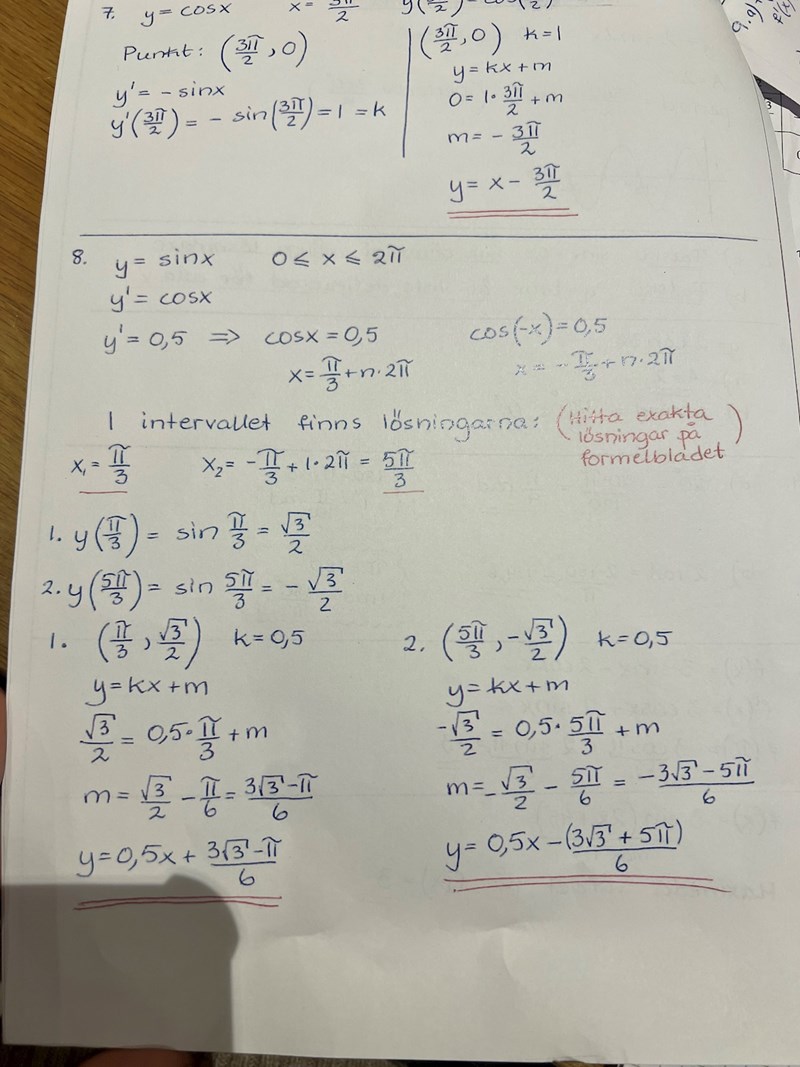 7. y = cosx x = 3π/2
Punkt: (3π/2, 0)
y' = - sinx
y'(3π/2) = - sin(3π/2) = 1 = k
(3π/2, 0) k = 1
y = kx + m
0 = 1 · 3π/2 + m
m = - 3π/2
y = x - 3π/2
8. y = sinx 0 ≤ x ≤ 2π
y' = cosx
y' = 0,5 ⇒ cosx = 0,5 cos(-x) = 0,5
x = π/3 + n·2π x = - π/3 + n·2π
I intervallet finns lösningarna: (Hitta exakta
lösningar på
formelbladet)
x₁ = π/3 x₂ = -π/3 + 1·2π = 5π/3
1. y(π/3) = sin π/3 = √3/2
2. y(5π/3) = sin 5π/3 = - √3/2
1. (π/3, √3/2) k = 0,5
y = kx + m
√3/2 = 0,5 · π/3 + m
m = √3/2 - π/6 = 3√3-π/6
y = 0,5x + 3√3-π/6
2. (5π/3, -√3/2) k = 0,5
y = kx + m
-√3/2 = 0,5 · 5π/3 + m
m = -√3/2 - 5π/6 = -3√3-5π/6
y = 0,5x - (3√3+5π)/6